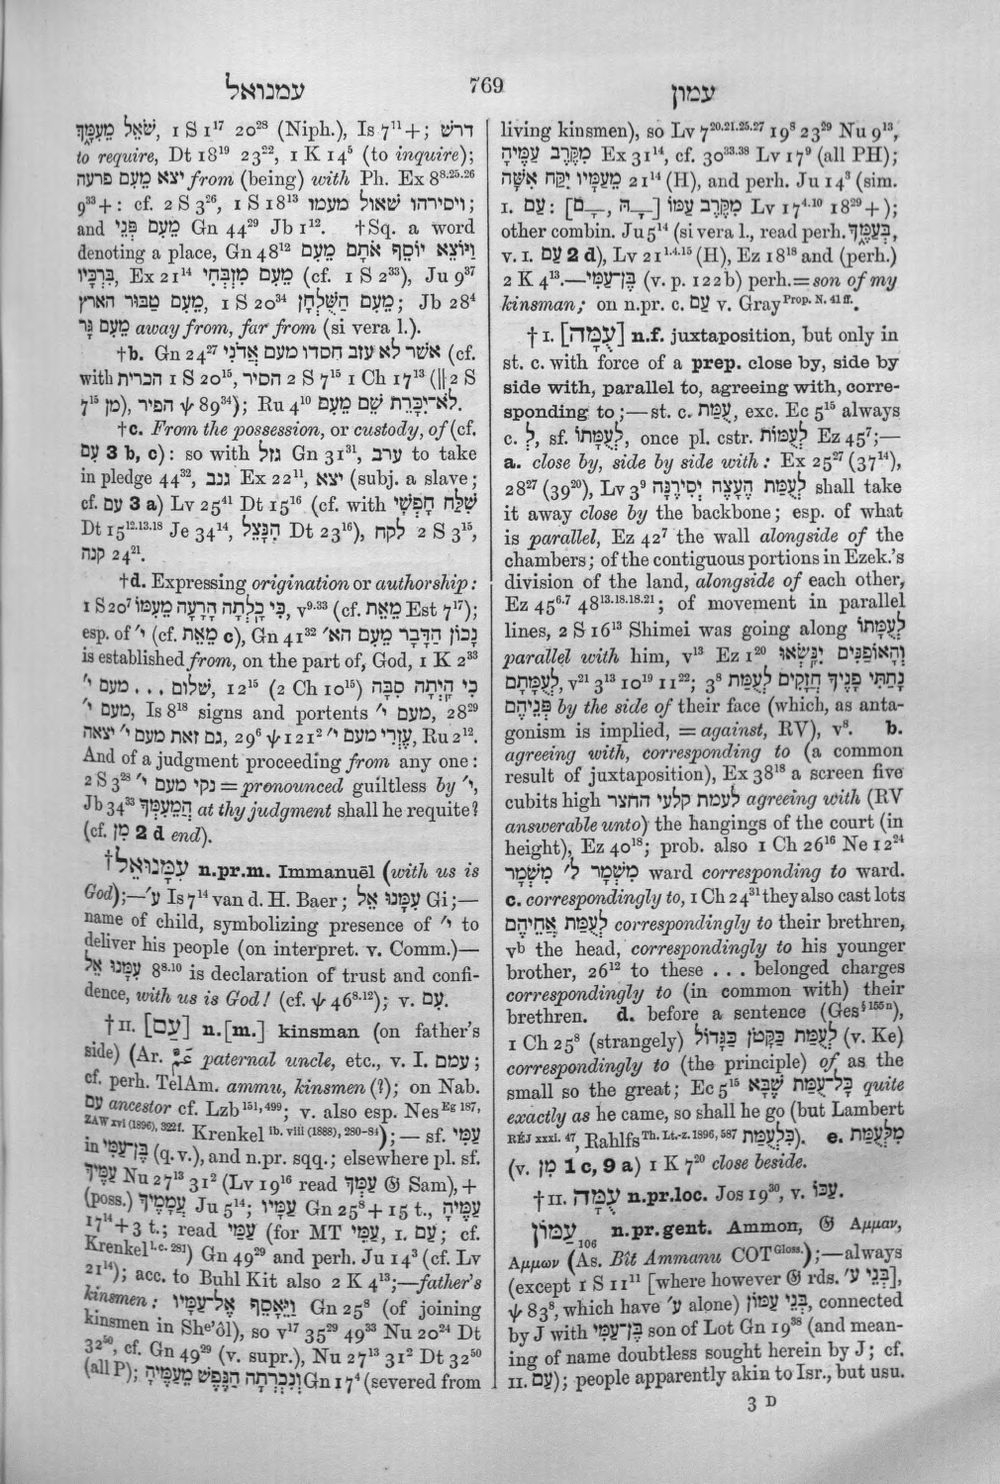 עמנואל
769
עמון
שׁאל מֵעִמְּךָ, 1 S 1¹⁷ 20²⁸ (Niph.), Is 7¹¹+; דרשׁ
to require, Dt 18¹⁹ 23²², 1 K 14⁵ (to inquire);
יצא מֵעִם פרעה from (being) with Ph. Ex 8⁸·²⁵·²⁶
9³³+: cf. 2 S 3²⁶, 1 S 18¹³ ויסירהו שׁאול מעמו;
and מֵעִם פְּנֵי Gn 44²⁹ Jb 1¹². †Sq. a word
denoting a place, Gn 48¹² וַיּוֹצֵא יוֹסֵף אֹתָם מֵעִם
בִּרְכָּיו, Ex 21¹⁴ מֵעִם מִזְבְּחִי (cf. 1 S 2³³), Ju 9³⁷
מֵעִם טַבּוּר הארץ, 1 S 20³⁴ מֵעִם הַשֻּׁלְחָן; Jb 28⁴
מֵעִם גָּר away from, far from (si vera l.).
†b. Gn 24²⁷ אשׁר לא עזב חסדו מעם אֲדֹנִי (cf.
with הכרית 1 S 20¹⁵, הסיר 2 S 7¹⁵ 1 Ch 17¹³ (|| 2 S
7¹⁵ מן), הפיר ψ 89³⁴); Ru 4¹⁰ לֹא־יִכָּרֵת שֵׁם מֵעִם.
†c. From the possession, or custody, of (cf.
עִם 3 b, c): so with גזל Gn 31³¹, ערב to take
in pledge 44³², גנב Ex 22¹¹, יצא (subj. a slave;
cf. עִם 3 a) Lv 25⁴¹ Dt 15¹⁶ (cf. with שִׁלַּח חָפְשִׁי
Dt 15¹²·¹³·¹⁸ Je 34¹⁴, הִנָּצֵל Dt 23¹⁶), לקח 2 S 3¹⁵,
קנה 24²¹.
†d. Expressing origination or authorship:
1 S 20⁷ כִּי כָלְתָה הָרָעָה מֵעִמּוֹ, v⁹·³³ (cf. מֵאֵת Est 7¹⁷);
esp. of י׳ (cf. מֵאֵת c), Gn 41³² נָכוֹן הַדָּבָר מֵעִם הא׳
is established from, on the part of, God, 1 K 2³³
שׁלום ... מעם י׳, 12¹⁵ (2 Ch 10¹⁵) כִּי הָיְתָה סִבָּה
מעם י׳, Is 8¹⁸ signs and portents מעם י׳, 28²⁹
גם זאת מעם י׳ יצאה, 29⁶ ψ 121² עֶזְרִי מעם י׳, Ru 2¹².
And of a judgment proceeding from any one:
2 S 3²⁸ נקי מעם י׳ = pronounced guiltless by י׳,
Jb 34³³ הֲמֵעִמְּךָ at thy judgment shall he requite?
(cf. מִן 2 d end).
†עִמָּנוּאֵל n.pr.m. Immanuēl (with us is
God);—ע׳ Is 7¹⁴ van d. H. Baer; עִמָּנוּ אֵל Gi;—
name of child, symbolizing presence of י׳ to
deliver his people (on interpret. v. Comm.)—
עִמָּנוּ אֵל 8⁸·¹⁰ is declaration of trust and confi-
dence, with us is God! (cf. ψ 46⁸·¹²); v. עִם.
†II. [עַם] n.[m.] kinsman (on father's
side) (Ar. عَمّ paternal uncle, etc., v. I. עמם;
cf. perh. TelAm. ammu, kinsmen (?); on Nab.
עם ancestor cf. Lzb¹⁵¹,⁴⁹⁹; v. also esp. Nes Eg 187,
ZAW xvi (1896), 322 f. Krenkel ib. viii (1888), 280-84); — sf. עַמִּי
in בֶּן־עַמִּי (q.v.), and n.pr. sqq.; elsewhere pl. sf.
עַמֶּיךָ Nu 27¹³ 31² (Lv 19¹⁶ read עַמֶּךָ 𝔊 Sam), +
(poss.) עֲמָמֶיךָ Ju 5¹⁴; עַמָּיו Gn 25⁸ + 15 t., עַמֶּיהָ
17¹⁴ + 3 t.; read עַמַּי (for MT עַמִּי, I. עַם; cf.
Krenkel l.c. 281) Gn 49²⁹ and perh. Ju 14³ (cf. Lv
21¹⁴); acc. to Buhl Kit also 2 K 4¹³;—father's
kinsmen: וַיֵּאָסֶף אֶל־עַמָּיו Gn 25⁸ (of joining
kinsmen in She'ôl), so v¹⁷ 35²⁹ 49³³ Nu 20²⁴ Dt
32⁵⁰, cf. Gn 49²⁹ (v. supr.), Nu 27¹³ 31² Dt 32⁵⁰
(all P); וְנִכְרְתָה הַנֶּפֶשׁ מֵעַמֶּיהָ Gn 17⁴ (severed from
living kinsmen), so Lv 7²⁰·²¹·²⁵·²⁷ 19⁸ 23²⁹ Nu 9¹³,
מִקֶּרֶב עַמֶּיהָ Ex 31¹⁴, cf. 30³³·³⁸ Lv 17⁹ (all PH);
מֵעַמָּיו יִקַּח אִשָּׁה 21¹⁴ (H), and perh. Ju 14³ (sim.
I. עַם: [־ָם, ־ָהּ] מִקֶּרֶב עַמּוֹ Lv 17⁴·¹⁰ 18²⁹+);
other combin. Ju 5¹⁴ (si vera l., read perh. בְּעַמֶּךָ,
v. I. עַם 2 d), Lv 21¹·⁴·¹⁵ (H), Ez 18¹⁸ and (perh.)
2 K 4¹³.—בֶּן־עַמִּי (v. p. 122 b) perh. = son of my
kinsman; on n.pr. c. עַם v. Gray Prop. N. 41 ff.
†I. [עֻמָּה] n.f. juxtaposition, but only in
st. c. with force of a prep. close by, side by
side with, parallel to, agreeing with, corre-
sponding to;—st. c. עֻמַּת, exc. Ec 5¹⁵ always
c. לְ, sf. לְעֻמָּתוֹ, once pl. cstr. לְעֻמּוֹת Ez 45⁷;—
a. close by, side by side with: Ex 25²⁷ (37¹⁴),
28²⁷ (39²⁰), Lv 3⁹ לְעֻמַּת הֶעָצֶה יְסִירֶנָּה shall take
it away close by the backbone; esp. of what
is parallel, Ez 42⁷ the wall alongside of the
chambers; of the contiguous portions in Ezek.'s
division of the land, alongside of each other,
Ez 45⁶·⁷ 48¹³·¹⁸·¹⁸·²¹; of movement in parallel
lines, 2 S 16¹³ Shimei was going along לְעֻמָּתוֹ
parallel with him, v¹³ Ez 1²⁰ וְהָאוֹפַנִּים יִנָּשְׂאוּ
לְעֻמָּתָם, v²¹ 3¹³ 10¹⁹ 11²²; 3⁸ נָתַתִּי פָנֶיךָ חֲזָקִים לְעֻמַּת
פְּנֵיהֶם by the side of their face (which, as anta-
gonism is implied, = against, RV), v⁸. b.
agreeing with, corresponding to (a common
result of juxtaposition), Ex 38¹⁸ a screen five
cubits high לעמת קלעי החצר agreeing with (RV
answerable unto) the hangings of the court (in
height), Ez 40¹⁸; prob. also 1 Ch 26¹⁶ Ne 12²⁴
מִשְׁמָר ל׳ מִשְׁמָר ward corresponding to ward.
c. correspondingly to, 1 Ch 24³¹ they also cast lots
לְעֻמַּת אֲחֵיהֶם correspondingly to their brethren,
vᵇ the head, correspondingly to his younger
brother, 26¹² to these ... belonged charges
correspondingly to (in common with) their
brethren. d. before a sentence (Ges § 155 n),
1 Ch 25⁸ (strangely) לְעֻמַּת כַּקָּטֹן כַּגָּדוֹל (v. Ke)
correspondingly to (the principle) of as the
small so the great; Ec 5¹⁵ כָּל־עֻמַּת שֶׁבָּא quite
exactly as he came, so shall he go (but Lambert
RÉJ xxxi. 47, Rahlfs Th. Lt.-z. 1896, 587 כִּלְעֻמַּת). e. מִלְּעֻמַּת
(v. מִן 1 c, 9 a) 1 K 7²⁰ close beside.
†II. עֻמָּה n.pr.loc. Jos 19³⁰, v. עַכּוֹ.
עַמּוֹן ₁₀₆ n.pr.gent. Ammon, 𝔊 Αμμαν,
Αμμων (As. Bît Ammanu COT Gloss.);—always
(except 1 S 11¹¹ [where however 𝔊 rds. בְּנֵי ע׳],
ψ 83⁸, which have ע׳ alone) בְּנֵי עַמּוֹן, connected
by J with בֶּן־עַמִּי son of Lot Gn 19³⁸ (and mean-
ing of name doubtless sought herein by J; cf.
II. עַם); people apparently akin to Isr., but usu.
3 D